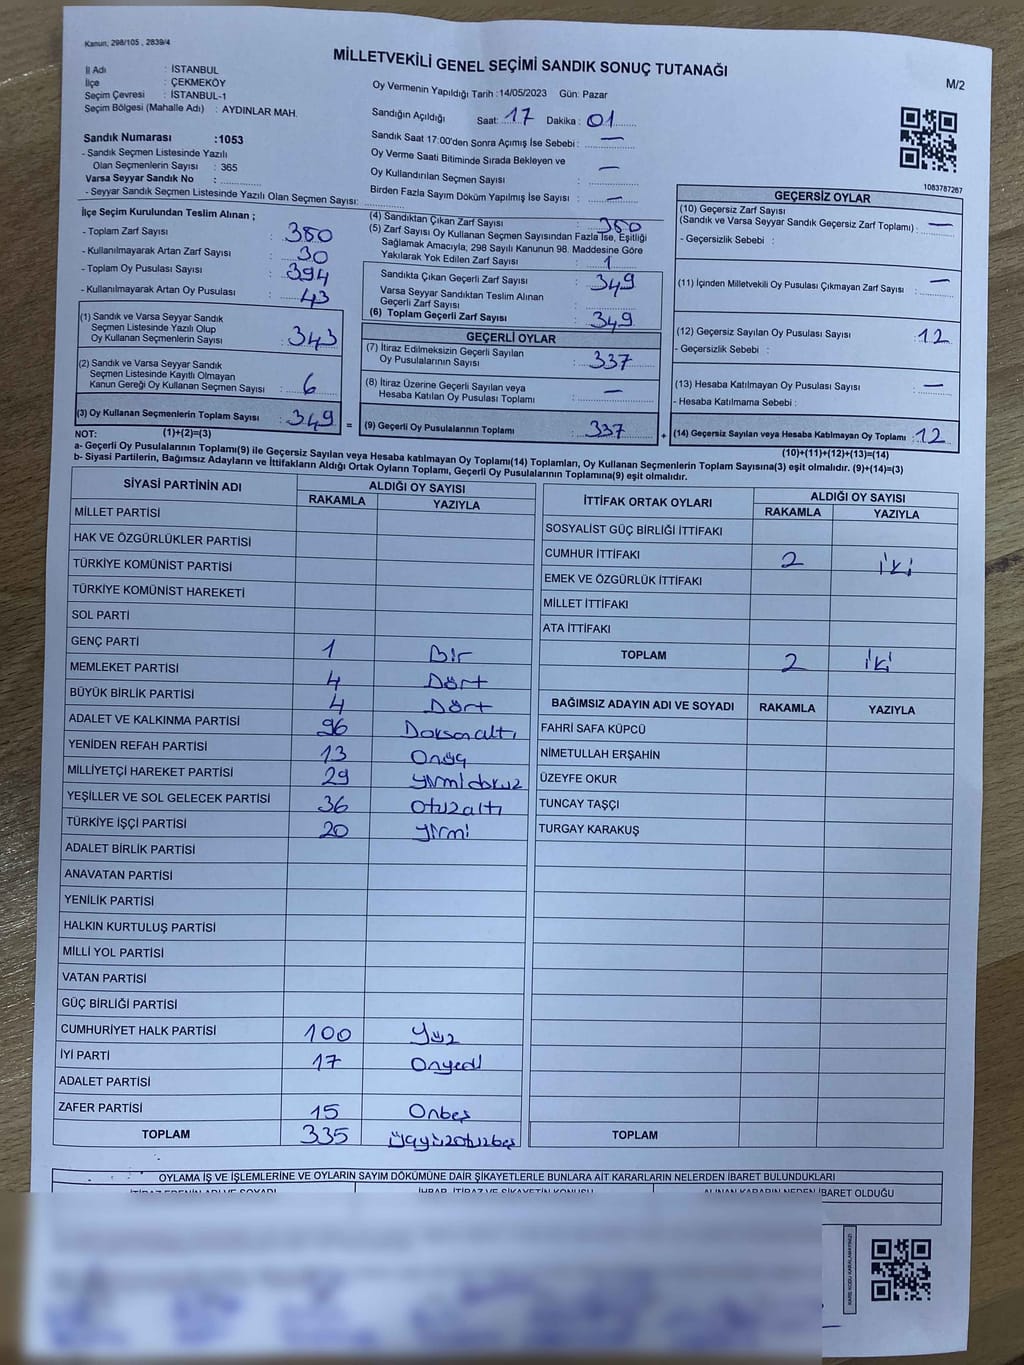 Kanun, 298/105 , 2839/4
MİLLETVEKİLİ GENEL SEÇİMİ SANDIK SONUÇ TUTANAĞI
M/2
İl Adı : İSTANBUL
İlçe : ÇEKMEKÖY
Seçim Çevresi : İSTANBUL-1
Seçim Bölgesi (Mahalle Adı) : AYDINLAR MAH.
Sandık Numarası :1053
- Sandık Seçmen Listesinde Yazılı
Olan Seçmenlerin Sayısı : 365
Varsa Seyyar Sandık No :
- Seyyar Sandık Seçmen Listesinde Yazılı Olan Seçmen Sayısı:
Oy Vermenin Yapıldığı Tarih :14/05/2023 Gün: Pazar
Sandığın Açıldığı Saat: 17 Dakika : 01
Sandık Saat 17:00'den Sonra Açımış İse Sebebi : —
Oy Verme Saati Bitiminde Sırada Bekleyen ve
Oy Kullandırılan Seçmen Sayısı : —
Birden Fazla Sayım Döküm Yapılmış İse Sayısı : —
1083787287
İlçe Seçim Kurulundan Teslim Alınan ;
- Toplam Zarf Sayısı : 380
- Kullanılmayarak Artan Zarf Sayısı : 30
- Toplam Oy Pusulası Sayısı : 394
- Kullanılmayarak Artan Oy Pusulası : 43
(1) Sandık ve Varsa Seyyar Sandık
Seçmen Listesinde Yazılı Olup
Oy Kullanan Seçmenlerin Sayısı : 343
(2) Sandık ve Varsa Seyyar Sandık
Seçmen Listesinde Kayıtlı Olmayan
Kanun Gereği Oy Kullanan Seçmen Sayısı : 6
(3) Oy Kullanan Seçmenlerin Toplam Sayısı : 349
(1)+(2)=(3)
(4) Sandıktan Çıkan Zarf Sayısı : 350
(5) Zarf Sayısı Oy Kullanan Seçmen Sayısından Fazla İse, Eşitliği
Sağlamak Amacıyla; 298 Sayılı Kanunun 98. Maddesine Göre
Yakılarak Yok Edilen Zarf Sayısı : 1
Sandıkta Çıkan Geçerli Zarf Sayısı : 349
Varsa Seyyar Sandıktan Teslim Alınan
Geçerli Zarf Sayısı :
(6) Toplam Geçerli Zarf Sayısı : 349
GEÇERLİ OYLAR
(7) İtiraz Edilmeksizin Geçerli Sayılan
Oy Pusulalarının Sayısı : 337
(8) İtiraz Üzerine Geçerli Sayılan veya
Hesaba Katılan Oy Pusulası Toplamı : —
= (9) Geçerli Oy Pusulalarının Toplamı : 337
GEÇERSİZ OYLAR
(10) Geçersiz Zarf Sayısı
(Sandık ve Varsa Seyyar Sandık Geçersiz Zarf Toplamı) : —
- Geçersizlik Sebebi :
(11) İçinden Milletvekili Oy Pusulası Çıkmayan Zarf Sayısı : —
(12) Geçersiz Sayılan Oy Pusulası Sayısı : 12
- Geçersizlik Sebebi :
(13) Hesaba Katılmayan Oy Pusulası Sayısı : —
- Hesaba Katılmama Sebebi :
+ (14) Geçersiz Sayılan veya Hesaba Katılmayan Oy Toplamı : 12
(10)+(11)+(12)+(13)=(14)
NOT:
a- Geçerli Oy Pusulalarının Toplamı(9) ile Geçersiz Sayılan veya Hesaba katılmayan Oy Toplamı(14) Toplamları, Oy Kullanan Seçmenlerin Toplam Sayısına(3) eşit olmalıdır. (9)+(14)=(3)
b- Siyasi Partilerin, Bağımsız Adayların ve İttifakların Aldığı Ortak Oyların Toplamı, Geçerli Oy Pusulalarının Toplamına(9) eşit olmalıdır.
SİYASİ PARTİNİN ADI ALDIĞI OY SAYISI
RAKAMLA YAZIYLA
MİLLET PARTİSİ
HAK VE ÖZGÜRLÜKLER PARTİSİ
TÜRKİYE KOMÜNİST PARTİSİ
TÜRKİYE KOMÜNİST HAREKETİ
SOL PARTİ
GENÇ PARTİ 1 Bir
MEMLEKET PARTİSİ 4 Dört
BÜYÜK BİRLİK PARTİSİ 4 Dört
ADALET VE KALKINMA PARTİSİ 96 Doksanaltı
YENİDEN REFAH PARTİSİ 13 Onüç
MİLLİYETÇİ HAREKET PARTİSİ 29 Yirmidokuz
YEŞİLLER VE SOL GELECEK PARTİSİ 36 Otuzaltı
TÜRKİYE İŞÇİ PARTİSİ 20 Yirmi
ADALET BİRLİK PARTİSİ
ANAVATAN PARTİSİ
YENİLİK PARTİSİ
HALKIN KURTULUŞ PARTİSİ
MİLLİ YOL PARTİSİ
VATAN PARTİSİ
GÜÇ BİRLİĞİ PARTİSİ
CUMHURİYET HALK PARTİSİ 100 Yüz
İYİ PARTİ 17 Onyedi
ADALET PARTİSİ
ZAFER PARTİSİ 15 Onbeş
TOPLAM 335 Üçyüzotuzbeş
İTTİFAK ORTAK OYLARI ALDIĞI OY SAYISI
RAKAMLA YAZIYLA
SOSYALİST GÜÇ BİRLİĞİ İTTİFAKI
CUMHUR İTTİFAKI 2 İki
EMEK VE ÖZGÜRLÜK İTTİFAKI
MİLLET İTTİFAKI
ATA İTTİFAKI
TOPLAM 2 İki
BAĞIMSIZ ADAYIN ADI VE SOYADI RAKAMLA YAZIYLA
FAHRİ SAFA KÜPCÜ
NİMETULLAH ERŞAHİN
ÜZEYFE OKUR
TUNCAY TAŞÇI
TURGAY KARAKUŞ
TOPLAM
OYLAMA İŞ VE İŞLEMLERİNE VE OYLARIN SAYIM DÖKÜMÜNE DAİR ŞİKAYETLERLE BUNLARA AİT KARARLARIN NELERDEN İBARET BULUNDUKLARI
İTİRAZ EDENİN ADI VE SOYADI İHBAR, İTİRAZ VE ŞİKAYETİN KONUSU ALINAN KARARIN NEDEN İBARET OLDUĞU
KARE KODU KARALAMAYINIZ!